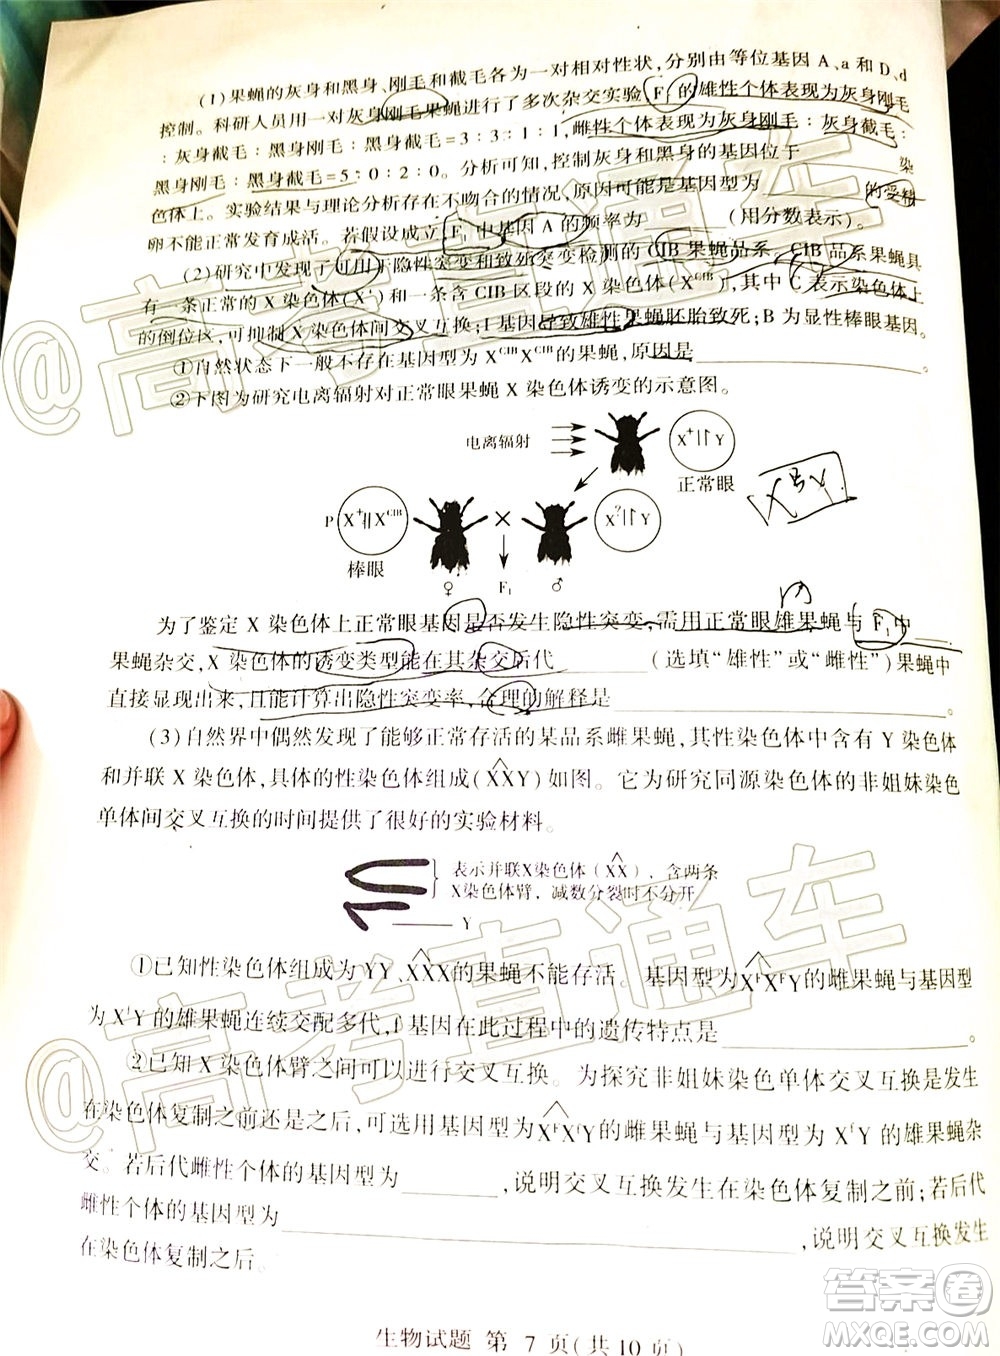 (1)果蝇的灰身和黑身、刚毛和截毛各为一对相对性状,分别由等位基因 A、a 和 D、d
控制。科研人员用一对灰身刚毛果蝇进行了多次杂交实验,F₁ 的雄性个体表现为灰身刚毛
:灰身截毛:黑身刚毛:黑身截毛=3:3:1:1,雌性个体表现为灰身刚毛:灰身截毛:
黑身刚毛:黑身截毛=5:0:2:0。分析可知,控制灰身和黑身的基因位于________染
色体上。实验结果与理论分析存在不吻合的情况,原因可能是基因型为________的受精
卵不能正常发育成活。若假设成立,F₁ 中基因 A 的频率为________(用分数表示)。
(2)研究中发现了可用于隐性突变和致死突变检测的 CIB 果蝇品系,CIB 品系果蝇具
有一条正常的 X 染色体(X⁺)和一条含 CIB 区段的 X 染色体(Xᶜᴵᴮ),其中 C 表示染色体上
的倒位区,可抑制 X 染色体间交叉互换;I 基因导致雄性果蝇胚胎致死;B 为显性棒眼基因。
①自然状态下一般不存在基因型为 XᶜᴵᴮXᶜᴵᴮ 的果蝇,原因是________。
②下图为研究电离辐射对正常眼果蝇 X 染色体诱变的示意图。
电离辐射
X⁺ Y
正常眼
P X⁺ Xᶜᴵᴮ
×
X? Y
棒眼
♀ F₁ ♂
为了鉴定 X 染色体上正常眼基因是否发生隐性突变,需用正常眼雄果蝇与 F₁ 中____
果蝇杂交,X 染色体的诱变类型能在其杂交后代________(选填“雄性”或“雌性”)果蝇中
直接显现出来,且能计算出隐性突变率,合理的解释是________。
(3)自然界中偶然发现了能够正常存活的某品系雌果蝇,其性染色体中含有 Y 染色体
和并联 X 染色体,具体的性染色体组成(X^XY)如图。它为研究同源染色体的非姐妹染色
单体间交叉互换的时间提供了很好的实验材料。
表示并联X染色体(X^X),含两条
X染色体臂,减数分裂时不分开
Y
①已知性染色体组成为 YY、X^XX的果蝇不能存活。基因型为XᶠXᶠY的雌果蝇与基因型
为 XᶠY 的雄果蝇连续交配多代,f 基因在此过程中的遗传特点是________。
②已知 X 染色体臂之间可以进行交叉互换。为探究非姐妹染色单体交叉互换是发生
在染色体复制之前还是之后,可选用基因型为XᶠXᶠY的雌果蝇与基因型为 XᶠY 的雄果蝇杂
交。若后代雌性个体的基因型为________,说明交叉互换发生在染色体复制之前;若后代
雌性个体的基因型为________,说明交叉互换发生
在染色体复制之后。
生物试题 第 7 页(共10页)
@高考直通车
@高考直通车
答案圈
MXQE.COM